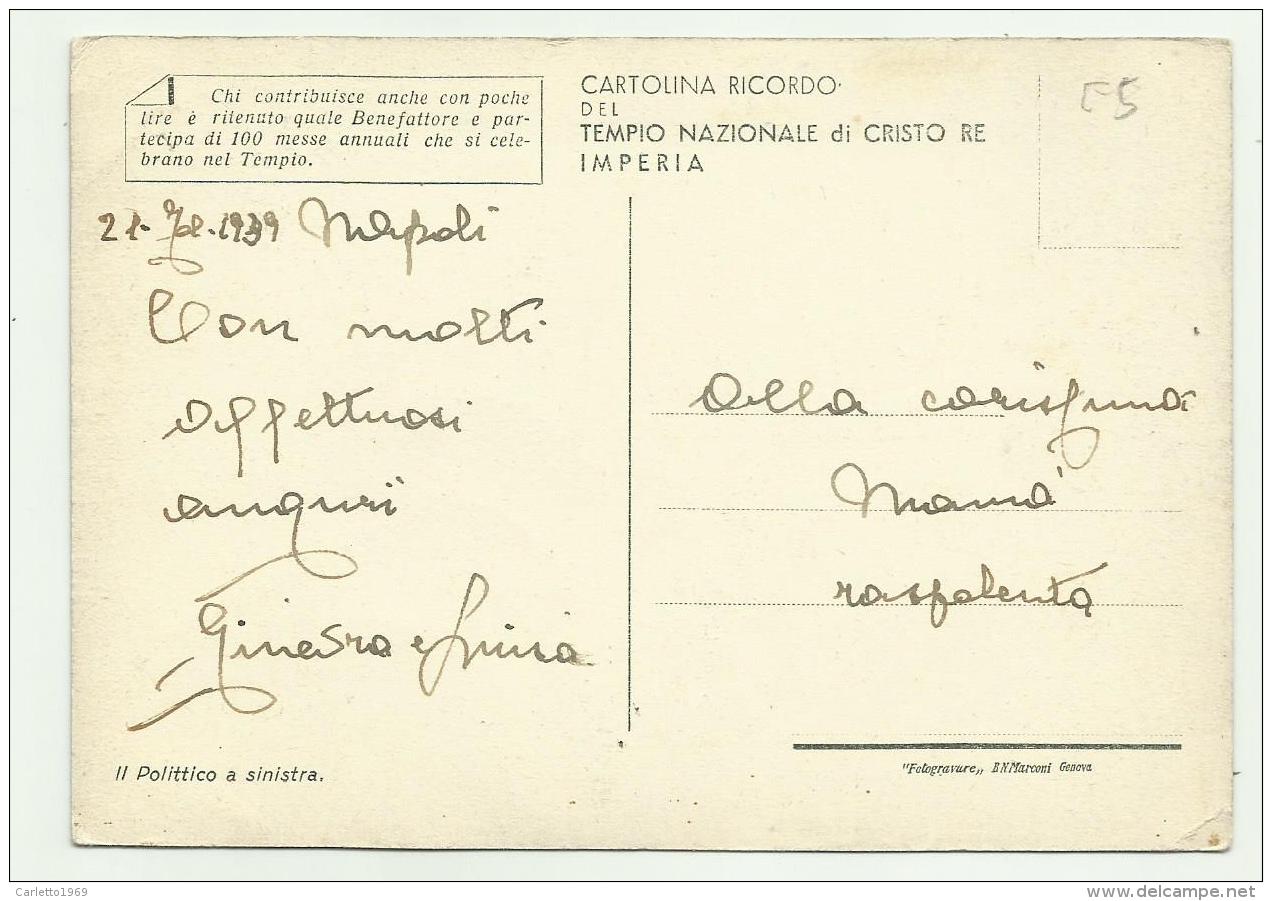 Chi contribuisce anche con poche
lire è ritenuto quale Benefattore e par-
tecipa di 100 messe annuali che si cele-
brano nel Tempio.
CARTOLINA RICORDO
DEL
TEMPIO NAZIONALE di CRISTO RE
IMPERIA
F5
21- 1939 Napoli
Con molti
affettuosi
auguri
Ginevra e Luisa
Alla carissima
Mamá
Il Polittico a sinistra.
"Fotogravure„ B.N.Marconi Genova
Carletto1969
www.delcampe.net